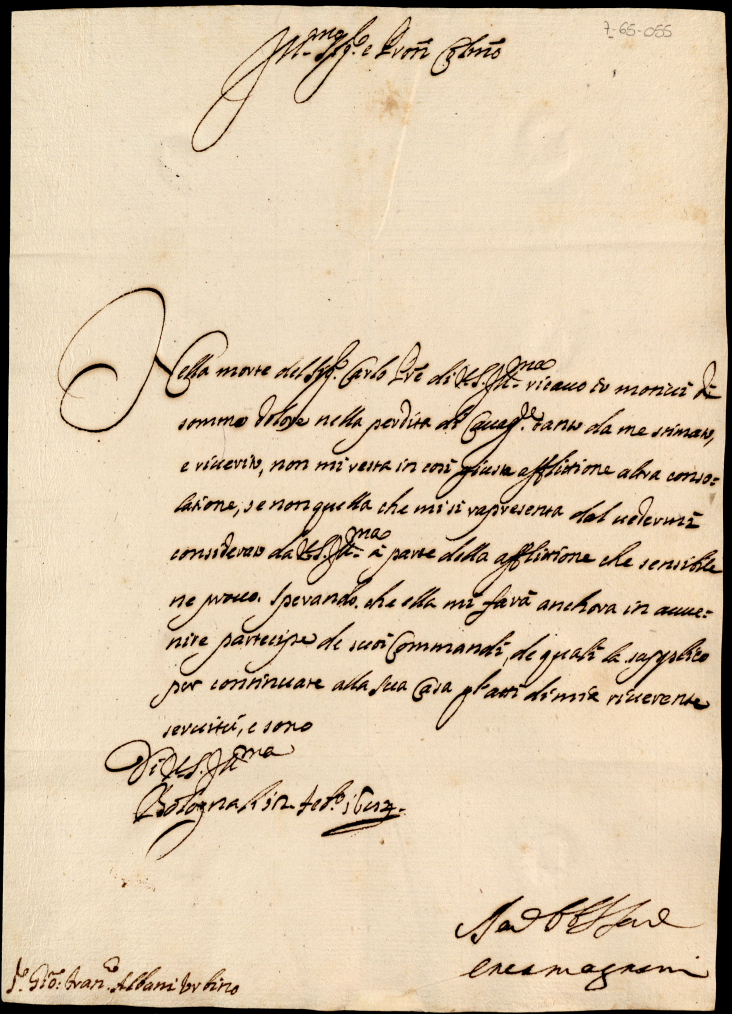 7-65-055
Ill.mo Sig.r e Pron Col.mo
Nella morte del Sig.r Carlo Pre di V.S. Ill.ma
sommo dolore nella perdita di Cavag.re tanto da me stimato,
e riverito, non mi resta in così giusta afflittione altra conso=
latione, se non quella che mi si rapresenta del vedermi
considerato da V.S. Ill.ma à parte della afflitione che sensibile
ne provo. Sperando che ella mi farà anchora in avve=
nire partecipe de suoi Commandi, de quali la supplico
per continuare alla sua Casa gl'atti di mia riverente
servitù, e sono
Di V.S. Ill.ma
Bologna li 12 feb.o
enea magnani
S.r Gio: Fran.co Albani Urbino